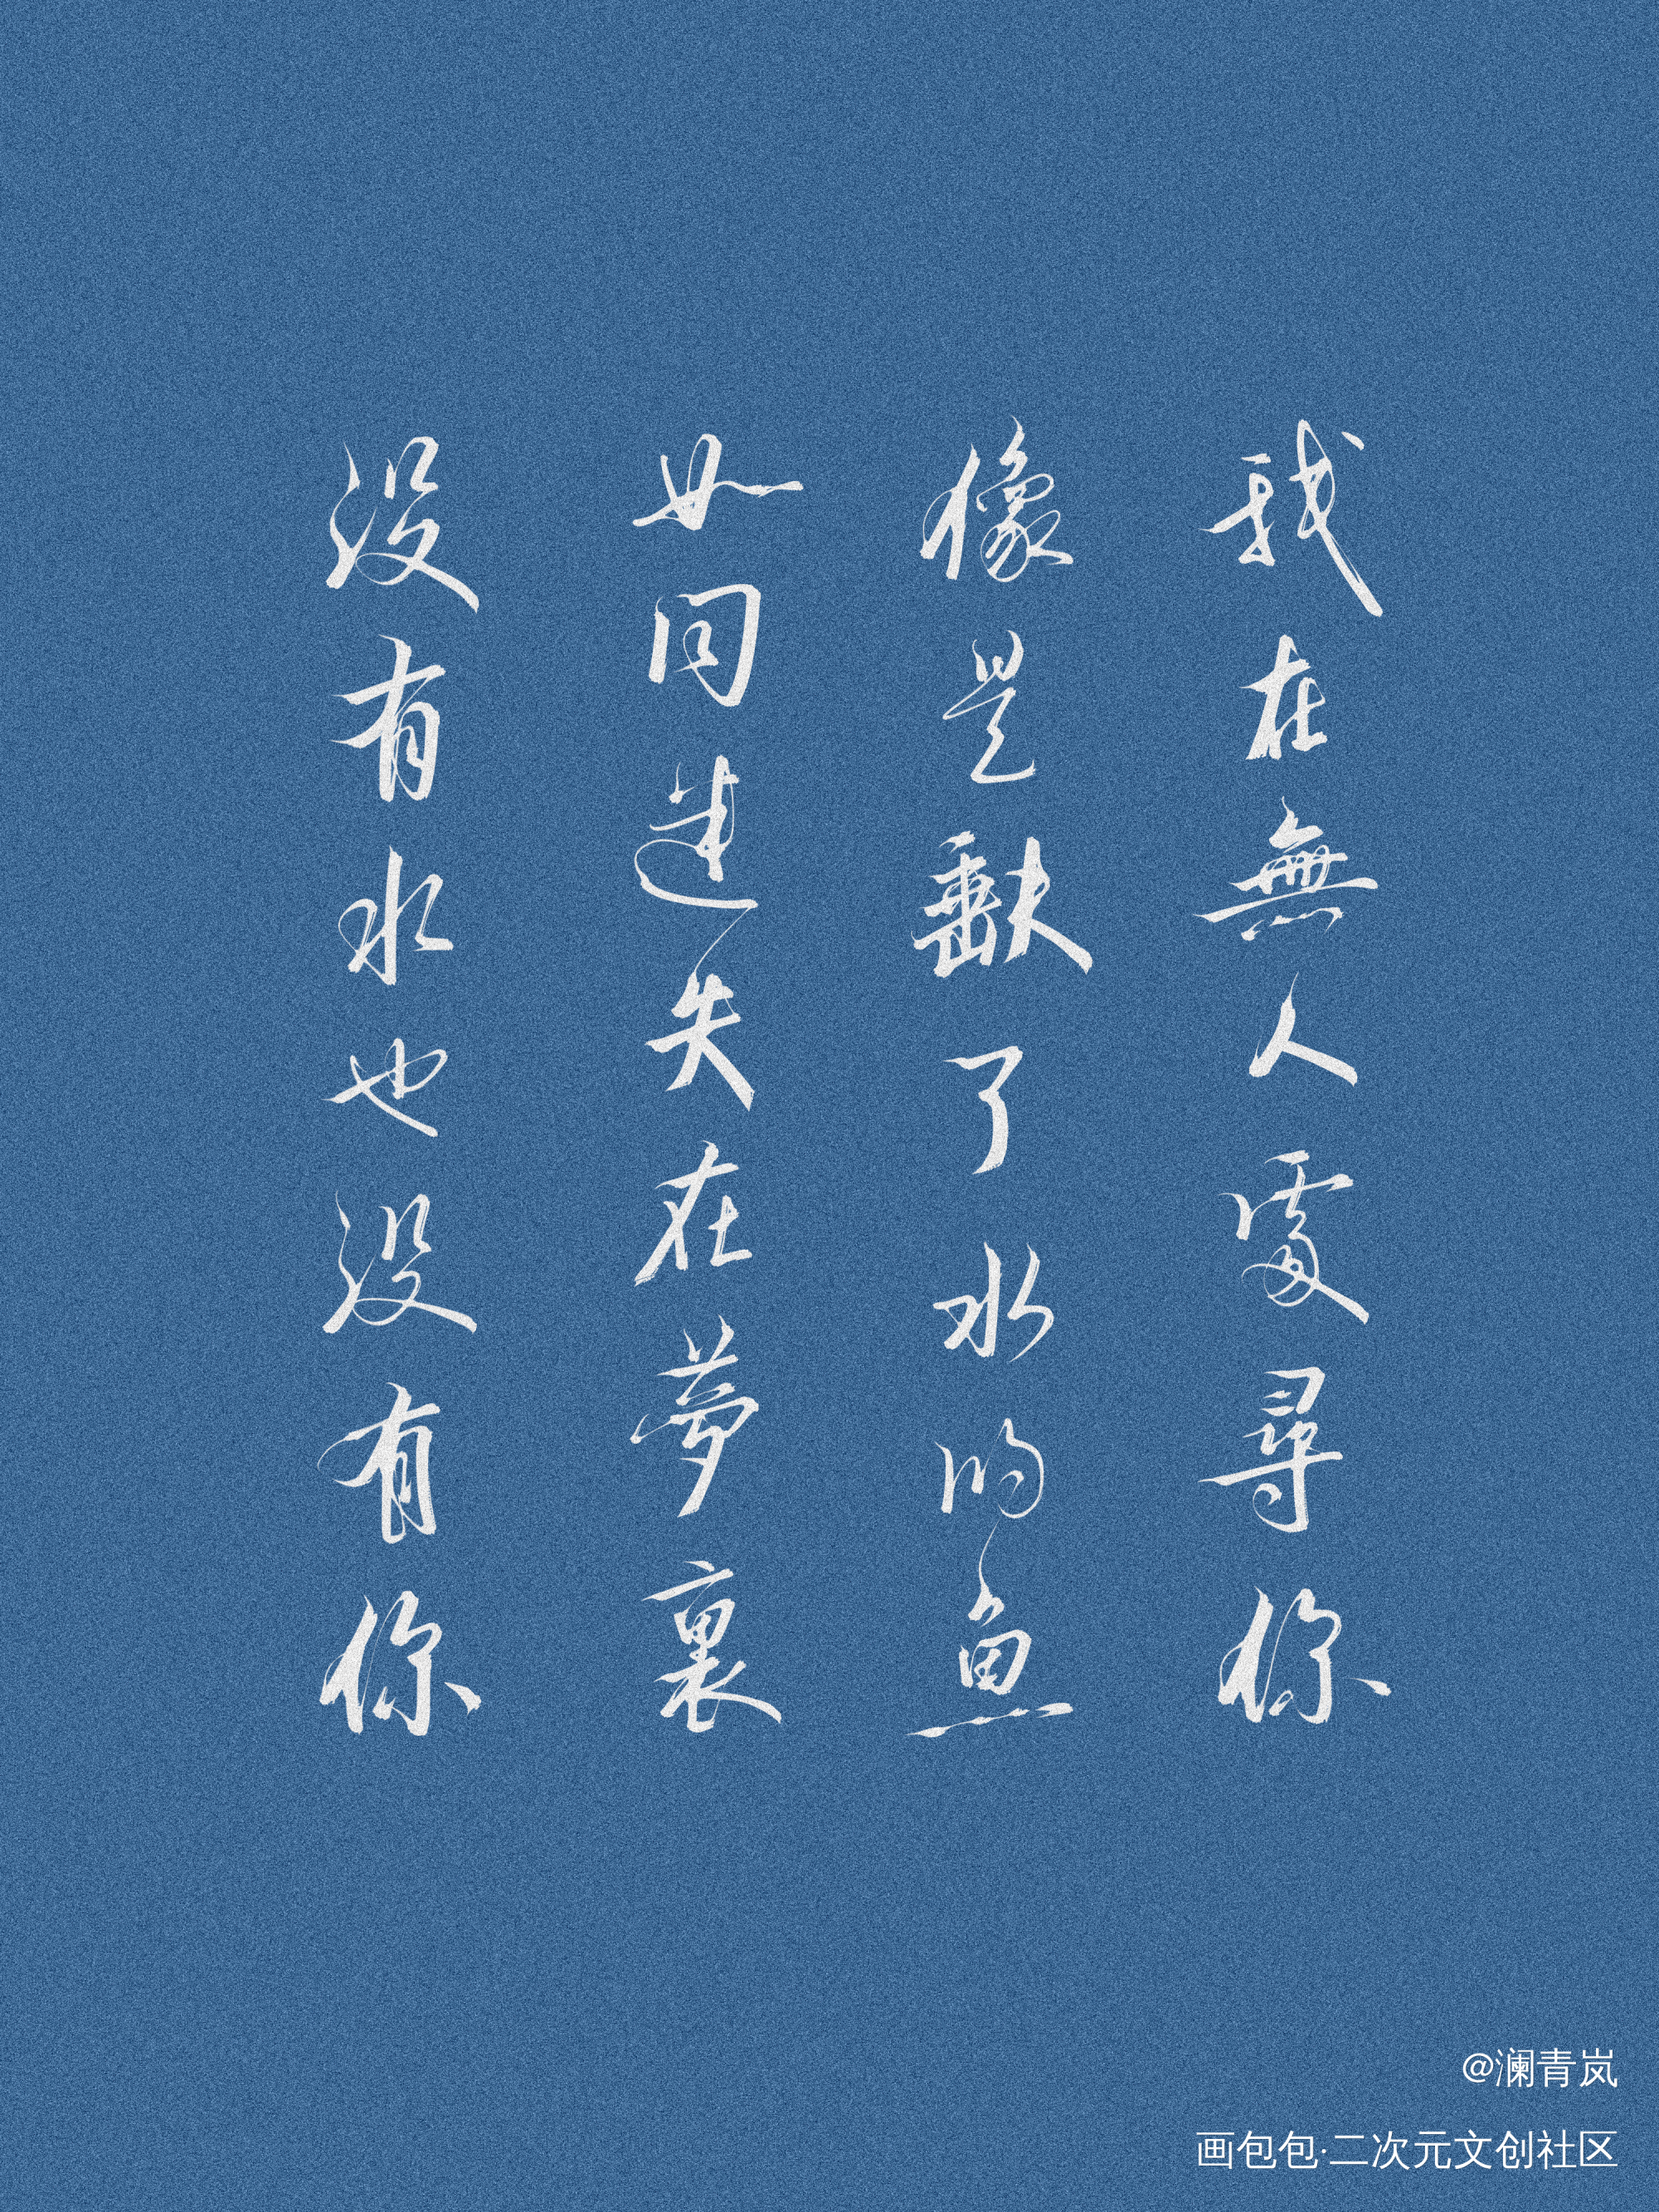 我在無人處尋你
像是缺了水的魚
如同迷失在夢裏
没有水也没有你
@澜青岚
画包包·二次元文创社区